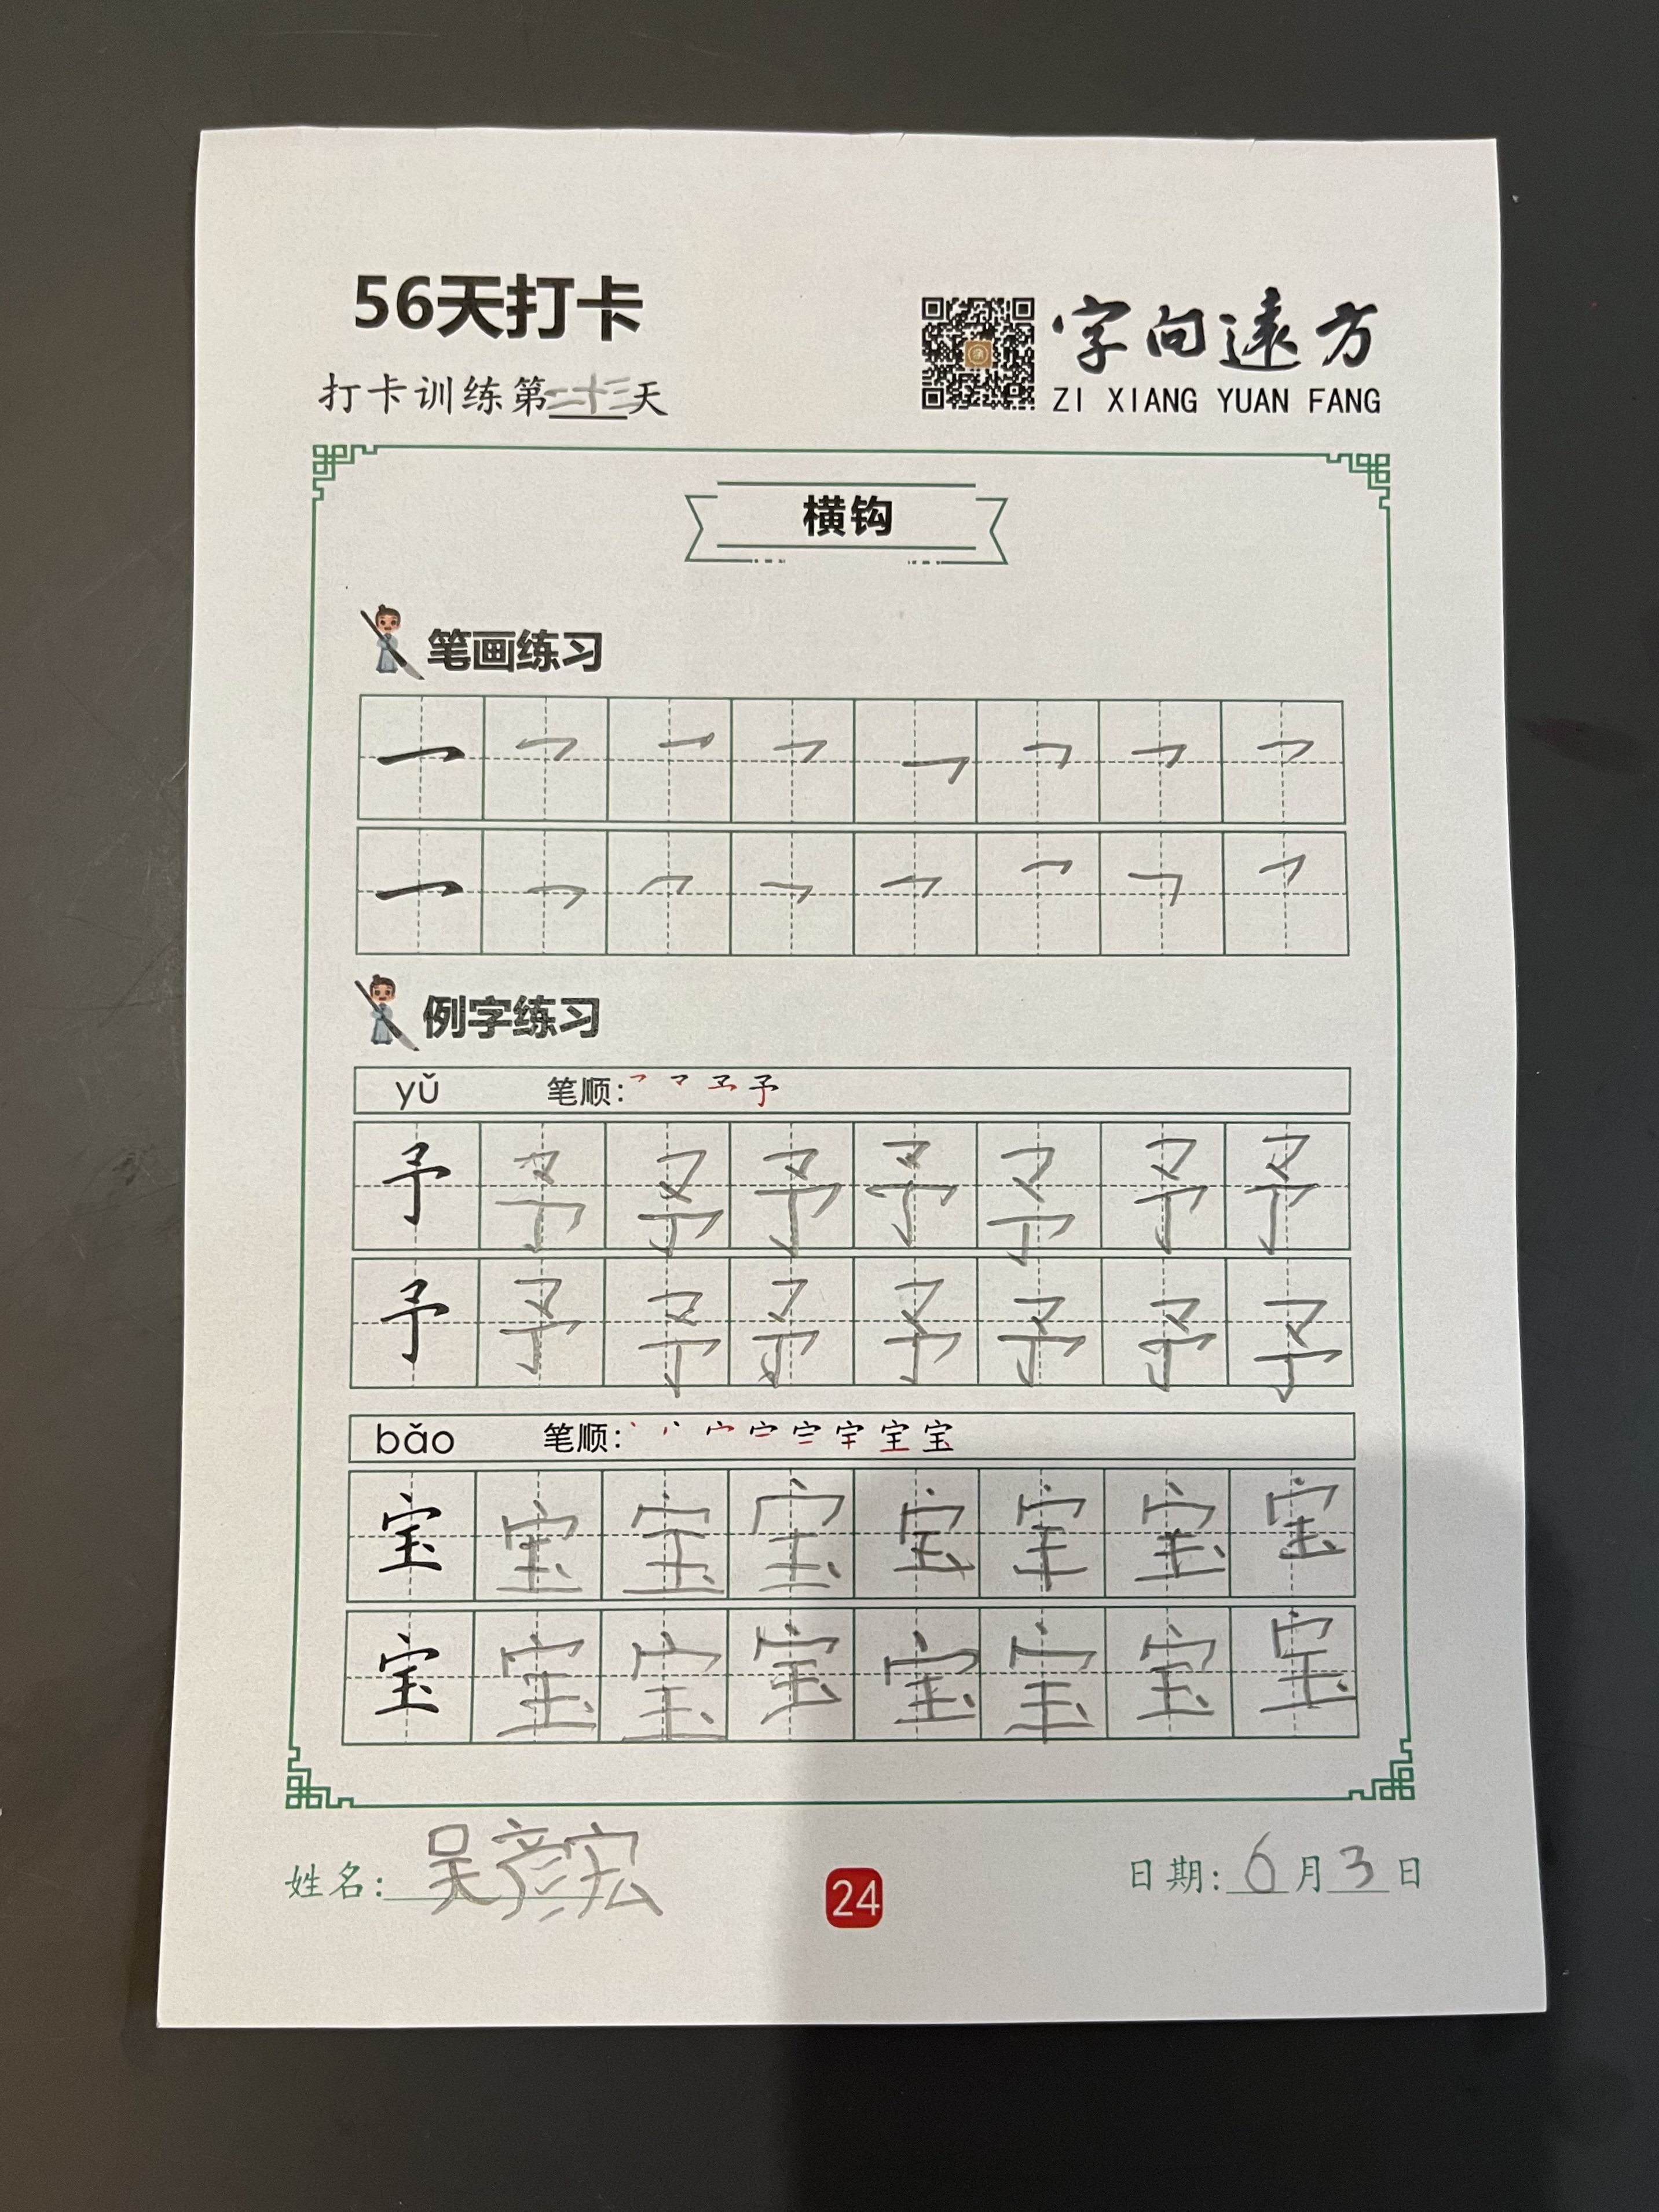 56天打卡
字向遠方
打卡训练第二十三天
ZI XIANG YUAN FANG
横钩
笔画练习
一 乛 乛 乛 乛 乛 乛 乛
一 乛 乛 乛 乛 乛 乛 乛
例字练习
yǔ 笔顺: 予
予 予 予 予 予 予 予 予
予 予 予 予 予 予 予 予
bǎo 笔顺: 宝
宝 宝 宝 宝 宝 宝 宝 宝
宝 宝 宝 宝 宝 宝 宝 宝
姓名: 吴彦宏
24
日期: 6月3日